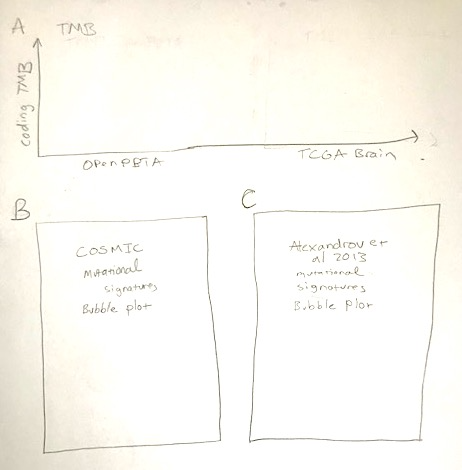 A TMB
coding TMB
OpenPBTA
TCGA Brain
B
COSMIC
Mutational
signatures
Bubble plot
C
Alexandrov et
al 2013
mutational
signatures
Bubble plot